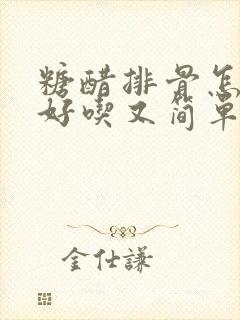 糖醋排骨怎
好喫又简单
金仕謙